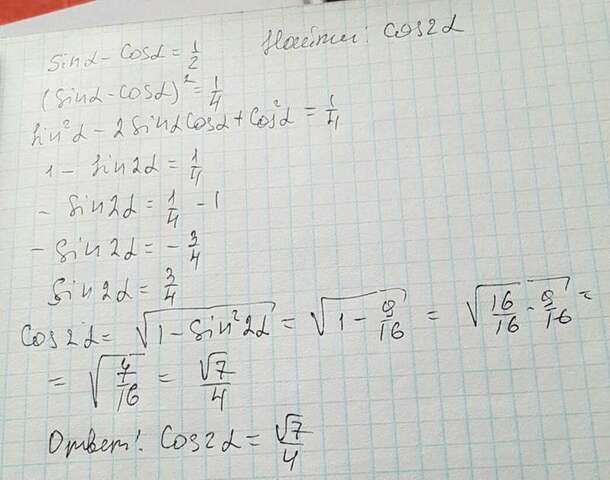 sinα - cosα = 1/2 Найти: cos2α
(sinα - cosα)² = 1/4
sin²α - 2sinαcosα + cos²α = 1/4
1 - sin2α = 1/4
- sin2α = 1/4 - 1
- sin2α = - 3/4
sin2α = 3/4
cos2α = √(1 - sin²2α) = √(1 - 9/16) = √(16/16 - 9/16) =
= √(7/16) = √7/4
Ответ: cos2α = √7/4